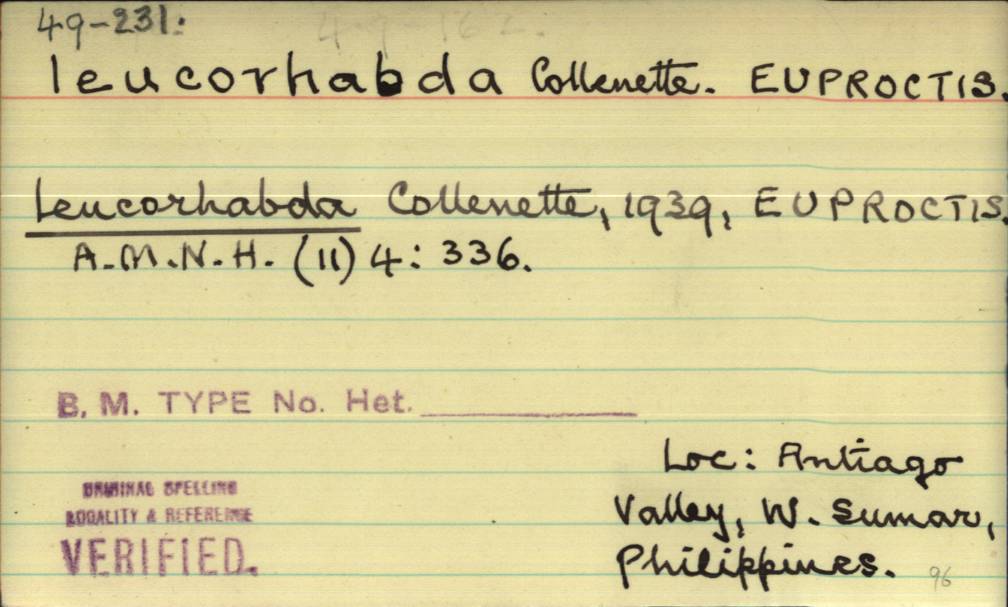 49-231:
leucorhabda Collenette. EUPROCTIS.
leucorhabda Collenette, 1939, EUPROCTIS.
A.M.N.H. (11) 4: 336.
B. M. TYPE No. Het.
Loc: Antiago
Valley, W. Sumar,
Philippines.
ORIGINAL SPELLING
LOCALITY & REFERENCE
VERIFIED.
96